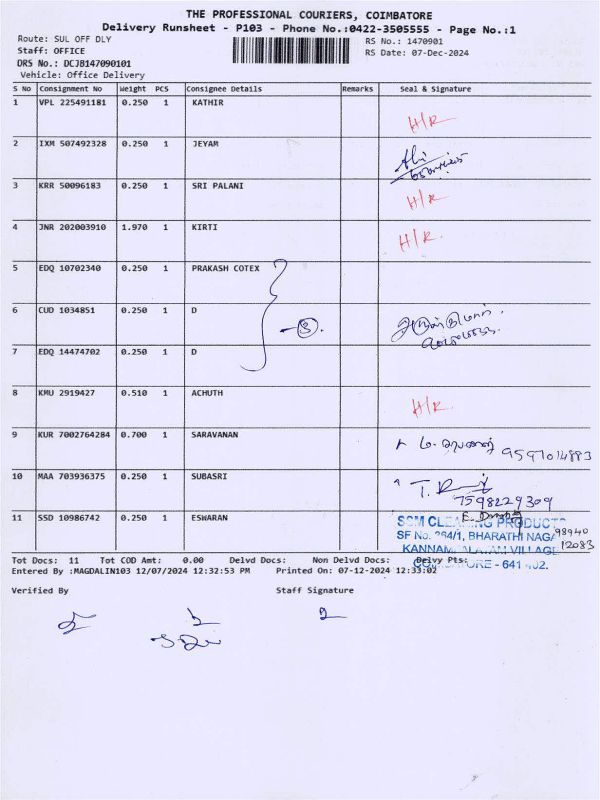 THE PROFESSIONAL COURIERS, COIMBATORE
Delivery Runsheet - P103 - Phone No.:0422-3505555 - Page No.:1
Route: SUL OFF DLY RS No.: 1470901
Staff: OFFICE RS Date: 07-Dec-2024
DRS No.: DCJB147090101
Vehicle: Office Delivery
S No Consignment No Weight PCS Consignee Details Remarks Seal & Signature
1 VPL 225491181 0.250 1 KATHIR H/R
2 IXM 507492328 0.250 1 JEYAM
3 KRR 50096183 0.250 1 SRI PALANI H/R
4 JNR 202003910 1.970 1 KIRTI H/R
5 EDQ 10702340 0.250 1 PRAKASH COTEX
6 CUD 1034851 0.250 1 D
7 EDQ 14474702 0.250 1 D
8 KMU 2919427 0.510 1 ACHUTH H/R
9 KUR 7002764284 0.700 1 SARAVANAN 9597014883
10 MAA 703936375 0.250 1 SUBASRI 7598229309
11 SSD 10986742 0.250 1 ESWARAN
SF No. 264/1, BHARATHI NAGA 98940
VILLAGE 12083
- 641 402.
Tot Docs: 11 Tot COD Amt: 0.00 Delvd Docs: Non Delvd Docs: Delvy Pts:
Entered By :MAGDALIN103 12/07/2024 12:32:53 PM Printed On: 07-12-2024 12:33:02
Verified By Staff Signature